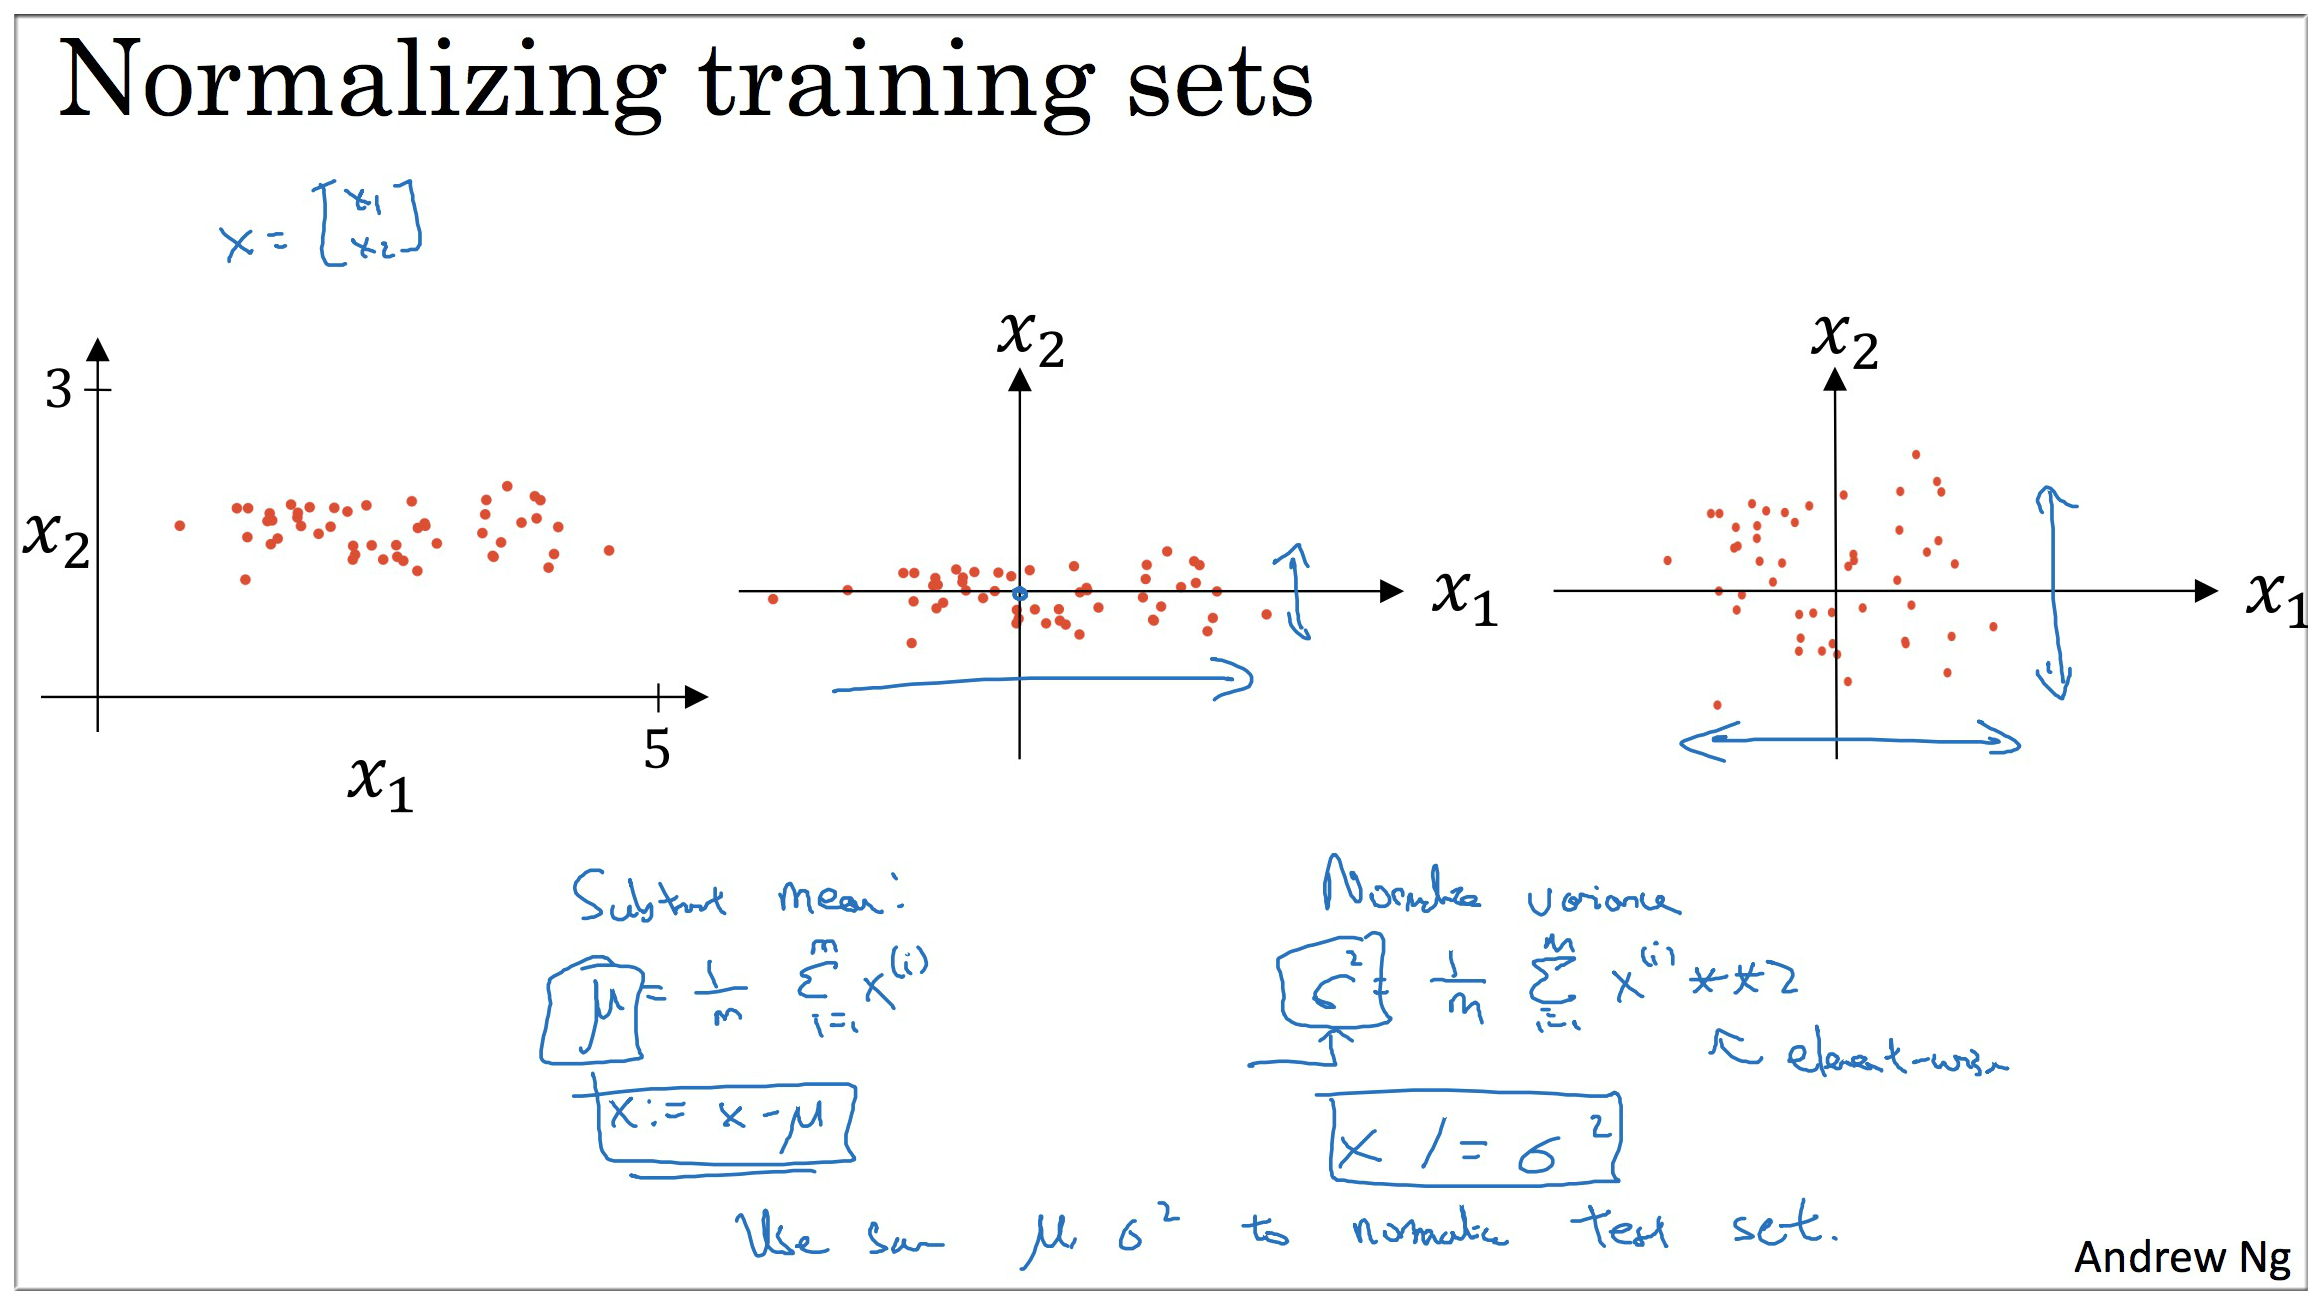 Normalizing training sets
x = [x1 x2]
3
x2
5
x1
x2
x1
x2
x1
Subtract mean:
μ = 1/m Σ i=1 m x^(i)
x := x - μ
Normalize variance
σ² = 1/m Σ i=1 m x^(i) **2
element-wise
x /= σ²
Use same μ, σ² to normalize test set.
Andrew Ng